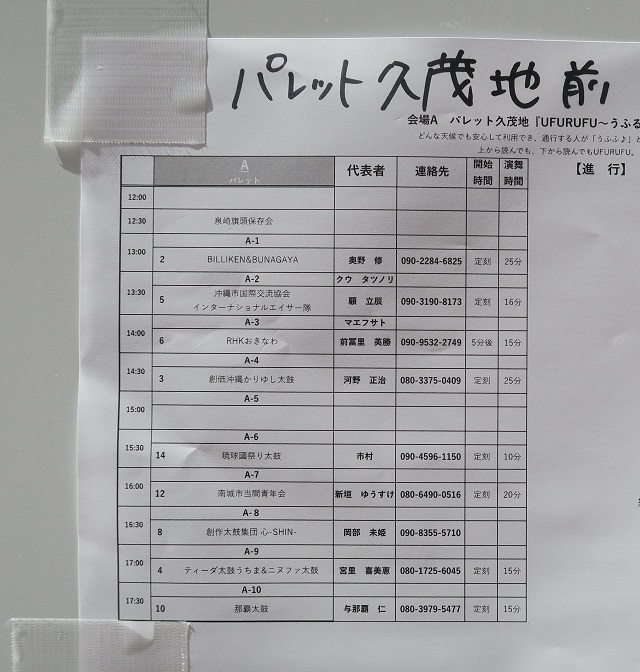 パレット久茂地前
会場A パレット久茂地『UFURUFU～うふる
どんな天候でも安心して利用でき、通行する人が「うふふ♪」と
上から読んでも、下から読んでもUFURUFU。
【進 行】
A パレット 代表者 連絡先 開始時間 演舞時間
12:00
12:30 泉崎旗頭保存会
A-1
13:00 2 BILLIKEN&BUNAGAYA 奥野 修 090-2284-6825 定刻 25分
A-2 クウ タツノリ
13:30 5 沖縄市国際交流協会 インターナショナルエイサー隊 顧 立辰 090-3190-8173 定刻 16分
A-3 マエフサト
14:00 6 RHKおきなわ 前冨里 英勝 090-9532-2749 5分後 15分
A-4
14:30 3 創価沖縄かりゆし太鼓 河野 正治 080-3375-0409 定刻 25分
A-5
15:00
A-6
15:30 14 琉球國祭り太鼓 市村 090-4596-1150 定刻 10分
A-7
16:00 12 南城市当間青年会 新垣 ゆうすけ 080-6490-0516 定刻 20分
A-8
16:30 8 創作太鼓集団 心-SHIN- 岡部 未姫 090-8355-5710
A-9
17:00 4 ティーダ太鼓うちま&ニヌファ太鼓 宮里 喜美恵 080-1725-6045 定刻 15分
A-10
17:30 10 那覇太鼓 与那覇 仁 080-3979-5477 定刻 15分